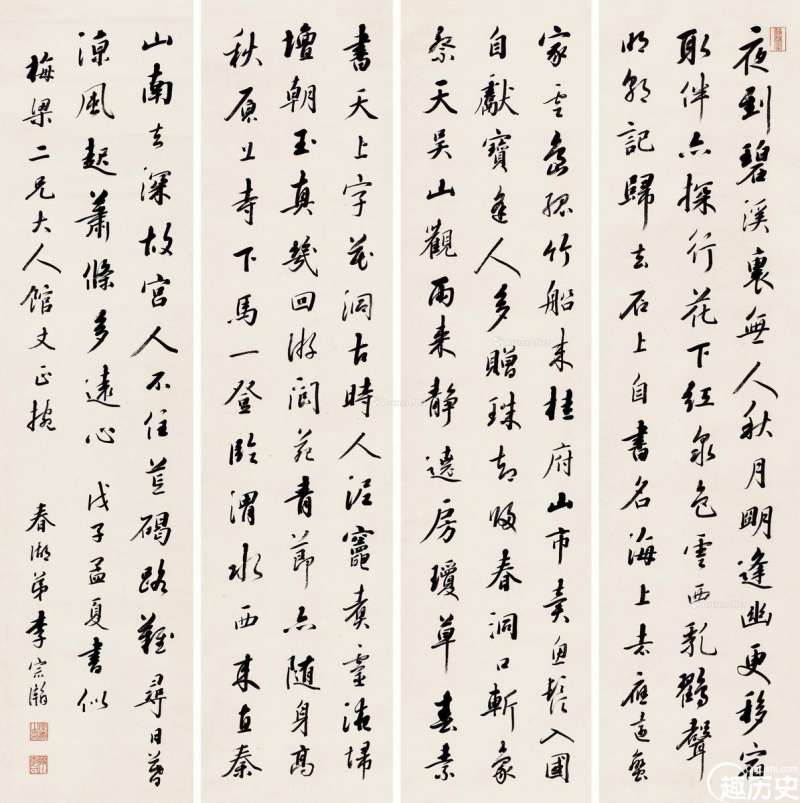 夜到碧溪裏無人秋月明逢幽更移宿
取伴亦探行花下紅泉色雲西乳鶴聲
明朝記歸去石上自書名海上去應遠蠻
家雲島孤竹船來桂府山市賣魚鬚入國
自獻寶逢人多贈珠却歸春洞口斬象
祭天吳山觀雨來靜遶房瓊草春素
書天上字花洞古時人泥竈煑靈液埽
壇朝玉真幾回游閬苑青節亦隨身高
秋原上寺下馬一登臨渭水西來直秦
山南去深故宮人不住荒碣路難尋日暮
涼風起蕭條多遠心 戊子孟夏書似
梅梁二兄大人館丈正捥 春湖弟李宗瀚
趣历史